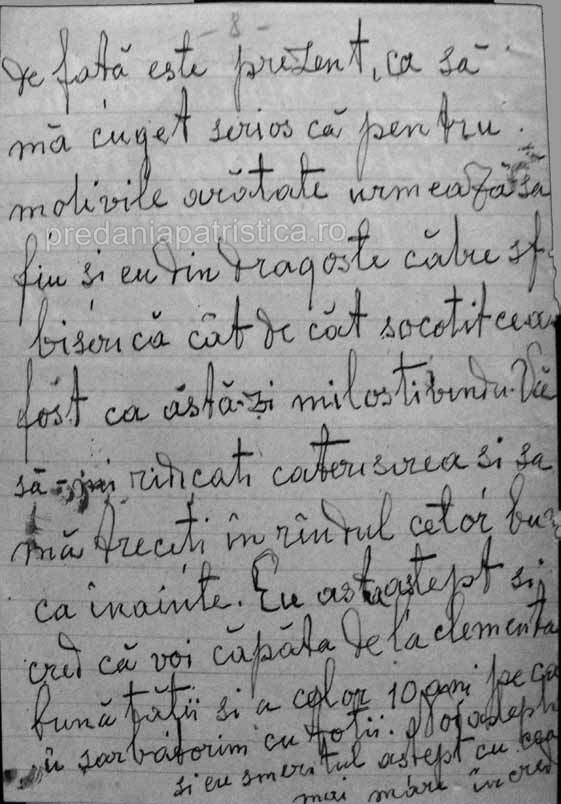 - 8 -
de fată este prezent, ca să
mă cuget serios că pentru
motivile arătate urmează să
predaniapatristica.ro
fiu și eu din dragoste către sf.
biserică cât de cât socotit ce am
fost ca astă-zi milostivindu-Vă
să-mi ridicati caterisirea si sa
mă treceti în rîndul celor buni
ca înainte. Eu asta astept si
cred că voi căpăta dela clementa
bunătății si a celor 10 ani pe care
îi sarbătorim cu totii.
si eu smeritul astept cu cea
mai mare încred